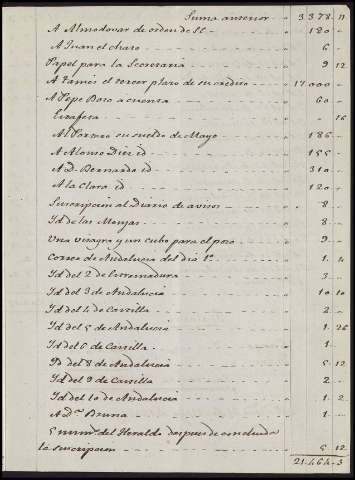 Suma anterior " 3.378. 11
A Almodovar de orden de SE " 120 "
A Juan el charo " 6 "
Papel para la Secretaria " 9 12
A Ramés el tercer plazo de su credito " 17 000 "
A Pepe Boso a cuenta " 60 "
Estafeta " " 16
Al Portero su sueldo de Mayo " 186 "
A Alonso Diez id " 155 "
A D. Bernardo id " 310 "
A la Clara id " 120 "
Suscripcion al Diario de avisos " 8 "
Id de las Monjas " 8 "
Una vinagra y un cubo para el pozo " 9 "
Correo de Andalucia del dia 1º " 1. 4
Id del 2 de Estremadura " 3 "
Id del 3 de Andalucia " 10 10
Id del 4 de Castilla " 2 "
Id del 5 de Andalucia " 1. 26
Id del 6 de Castilla " 1. "
Id del 8 de Andalucia " 5 12
Id del 9 de Castilla " 2 "
Id del 10 de Andalucia " 1. 2
A Dª Bruna " 1 "
5 num.s del Heraldo despues de concluida
la suscripcion " 5 12
21.464. 3